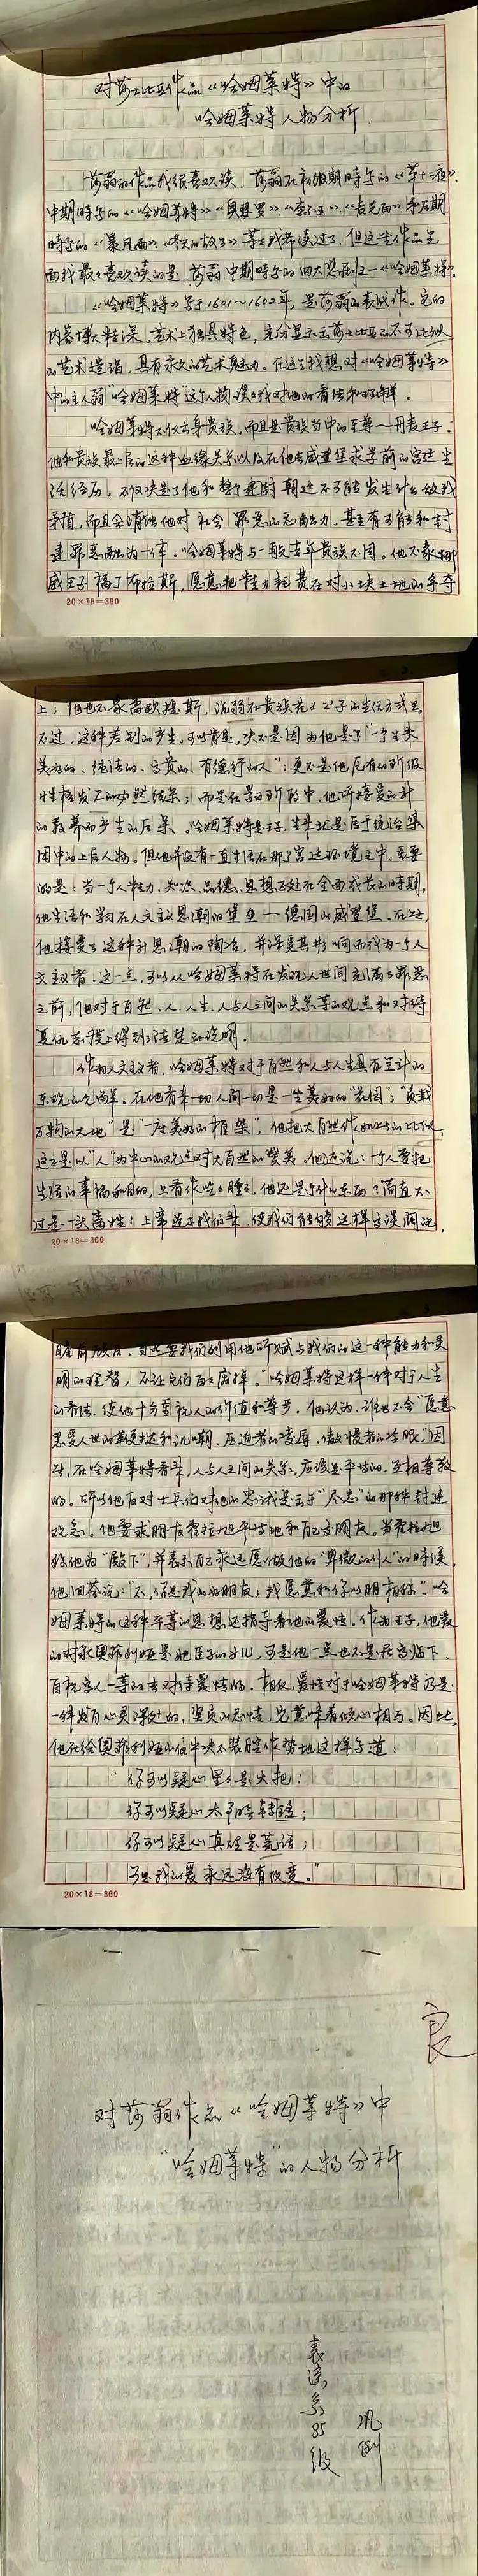 对莎士比亚作品《哈姆莱特》中的
哈姆莱特人物分析.
莎翁的作品我很喜欢读.莎翁在初级期时写的《第十二夜》.
中期时写的《哈姆莱特》《奥瑟罗》《李尔王》《麦克白》和后期
时写的《暴风雨》《冬天的故事》等等我都读过了.但这些作品里
面我最喜欢读的是莎翁中期时写的四大悲剧之一《哈姆莱特》.
《哈姆莱特》写于1601～1602年,是莎翁的代表作.它的
内容博大精深.艺术上独具特色,充分显示出莎士比亚的不可比拟
的艺术造诣,具有永久的艺术魅力.在这里我想对《哈姆莱特》
中的主人翁"哈姆莱特"这个人物谈谈我对他的看法和理解.
哈姆莱特不仅出身贵族,而且是贵族当中的至尊—丹麦王子.
他和贵族最上层的这种血缘关系以及在他去威登堡求学前的宫廷生
活经历,不仅决定了他和整个封建王朝这不可能发生什么敌我
矛盾,而且会消蚀他对社会罪恶的忍耐力,甚至有可能和封
建罪恶融为一体.哈姆莱特与一般青年贵族不同.他不象挪
威王子福丁布拉斯,愿意把精力耗费在对小块土地的争夺
20×18=360
上;他也不象雷欧提斯,沉溺和贵族花花公子的生活方式里.
不过,这种差别的产生,可以肯定,决不是因为他是个"一个生来
美好的、纯洁的、高贵的、有德行的人";更不是他原有的阶级
性格发展的必然结果;而是在学习阶段中,他所接受的新
的教养而产生的后果.哈姆莱特是王子,生来就是居于统治集
团中的上层人物.但他并没有一直生活在那个宫廷环境之中,重要
的是:当一个人精力、知识、品德、思想正处在全面成长的时期,
他生活和学习在人文主义思潮的堡垒—德国的威登堡.在这里,
他接受了这种新思潮的陶冶,并深受其影响而成为一个人
文主义者.这一点,可以从哈姆莱特在发现人世间充满了罪恶
之前,他对于自然、人、人生、人与人之间的关系等的观点和对待
复仇态度上得到了清楚的说明.
作为人文主义者,哈姆莱特对于自然和人与人生具有全新的
乐观的见解.在他看来一切人间一切是一座美好的"花园";"负载
万物的大地"是"一座美好的框架",他把大自然作如此的比拟,
这正是以"人"为中心的观点对大自然的赞美.他还说:一个人要把
生活的幸福和目的,只看作吃吃睡睡,他还是个什么东西?简直不
过是一头畜牲!上帝造下我们来,使我们能够这样高谈阔论,
20×18=360
瞻前顾后,当然要我们利用他所赋与我们的这一种能力和灵
明的理智,不让它们白白废掉."哈姆莱特这样一种对于人生
的看法.使他十分重视人的价值和尊严.他认为,谁也不会"愿意
忍受人世的鞭挞和讥嘲、压迫者的凌辱、傲慢者的冷眼".因
此,在哈姆莱特看来,人与人之间的关系,应该是平等的,互相尊敬
的.所以他反对士兵们对他的忠诚是出于"尽忠"的那种封建
观念.他要求朋友霍拉旭平等地和自己交朋友.当霍拉旭
称他为"殿下",并表示自己永远愿做他的"卑微的仆人"的时候,
他回答说:"不,你是我的好朋友;我愿意和你以朋友相称".哈
姆莱特的这种平等的思想还指导着他的爱情.作为王子,他爱
的对象奥菲利娅是她臣子的女儿,可是他一点也不是居高临下.
自视高人一等的去对待爱情的.相反,爱情对于哈姆莱特乃是
一种发自心灵深处的,坚贞的感情,它意味着倾心相与.因此,
他在给奥菲利娅的信中决不装腔作势地这样写道:
"你可以疑心星星是火把;
你可以疑心太阳会转移;
你可以疑心真理是谎话;
可是我的爱永远没有改变."
20×18=360
良
对莎翁作品《哈姆莱特》中
"哈姆莱特"的人物分析
表演系85级
巩俐